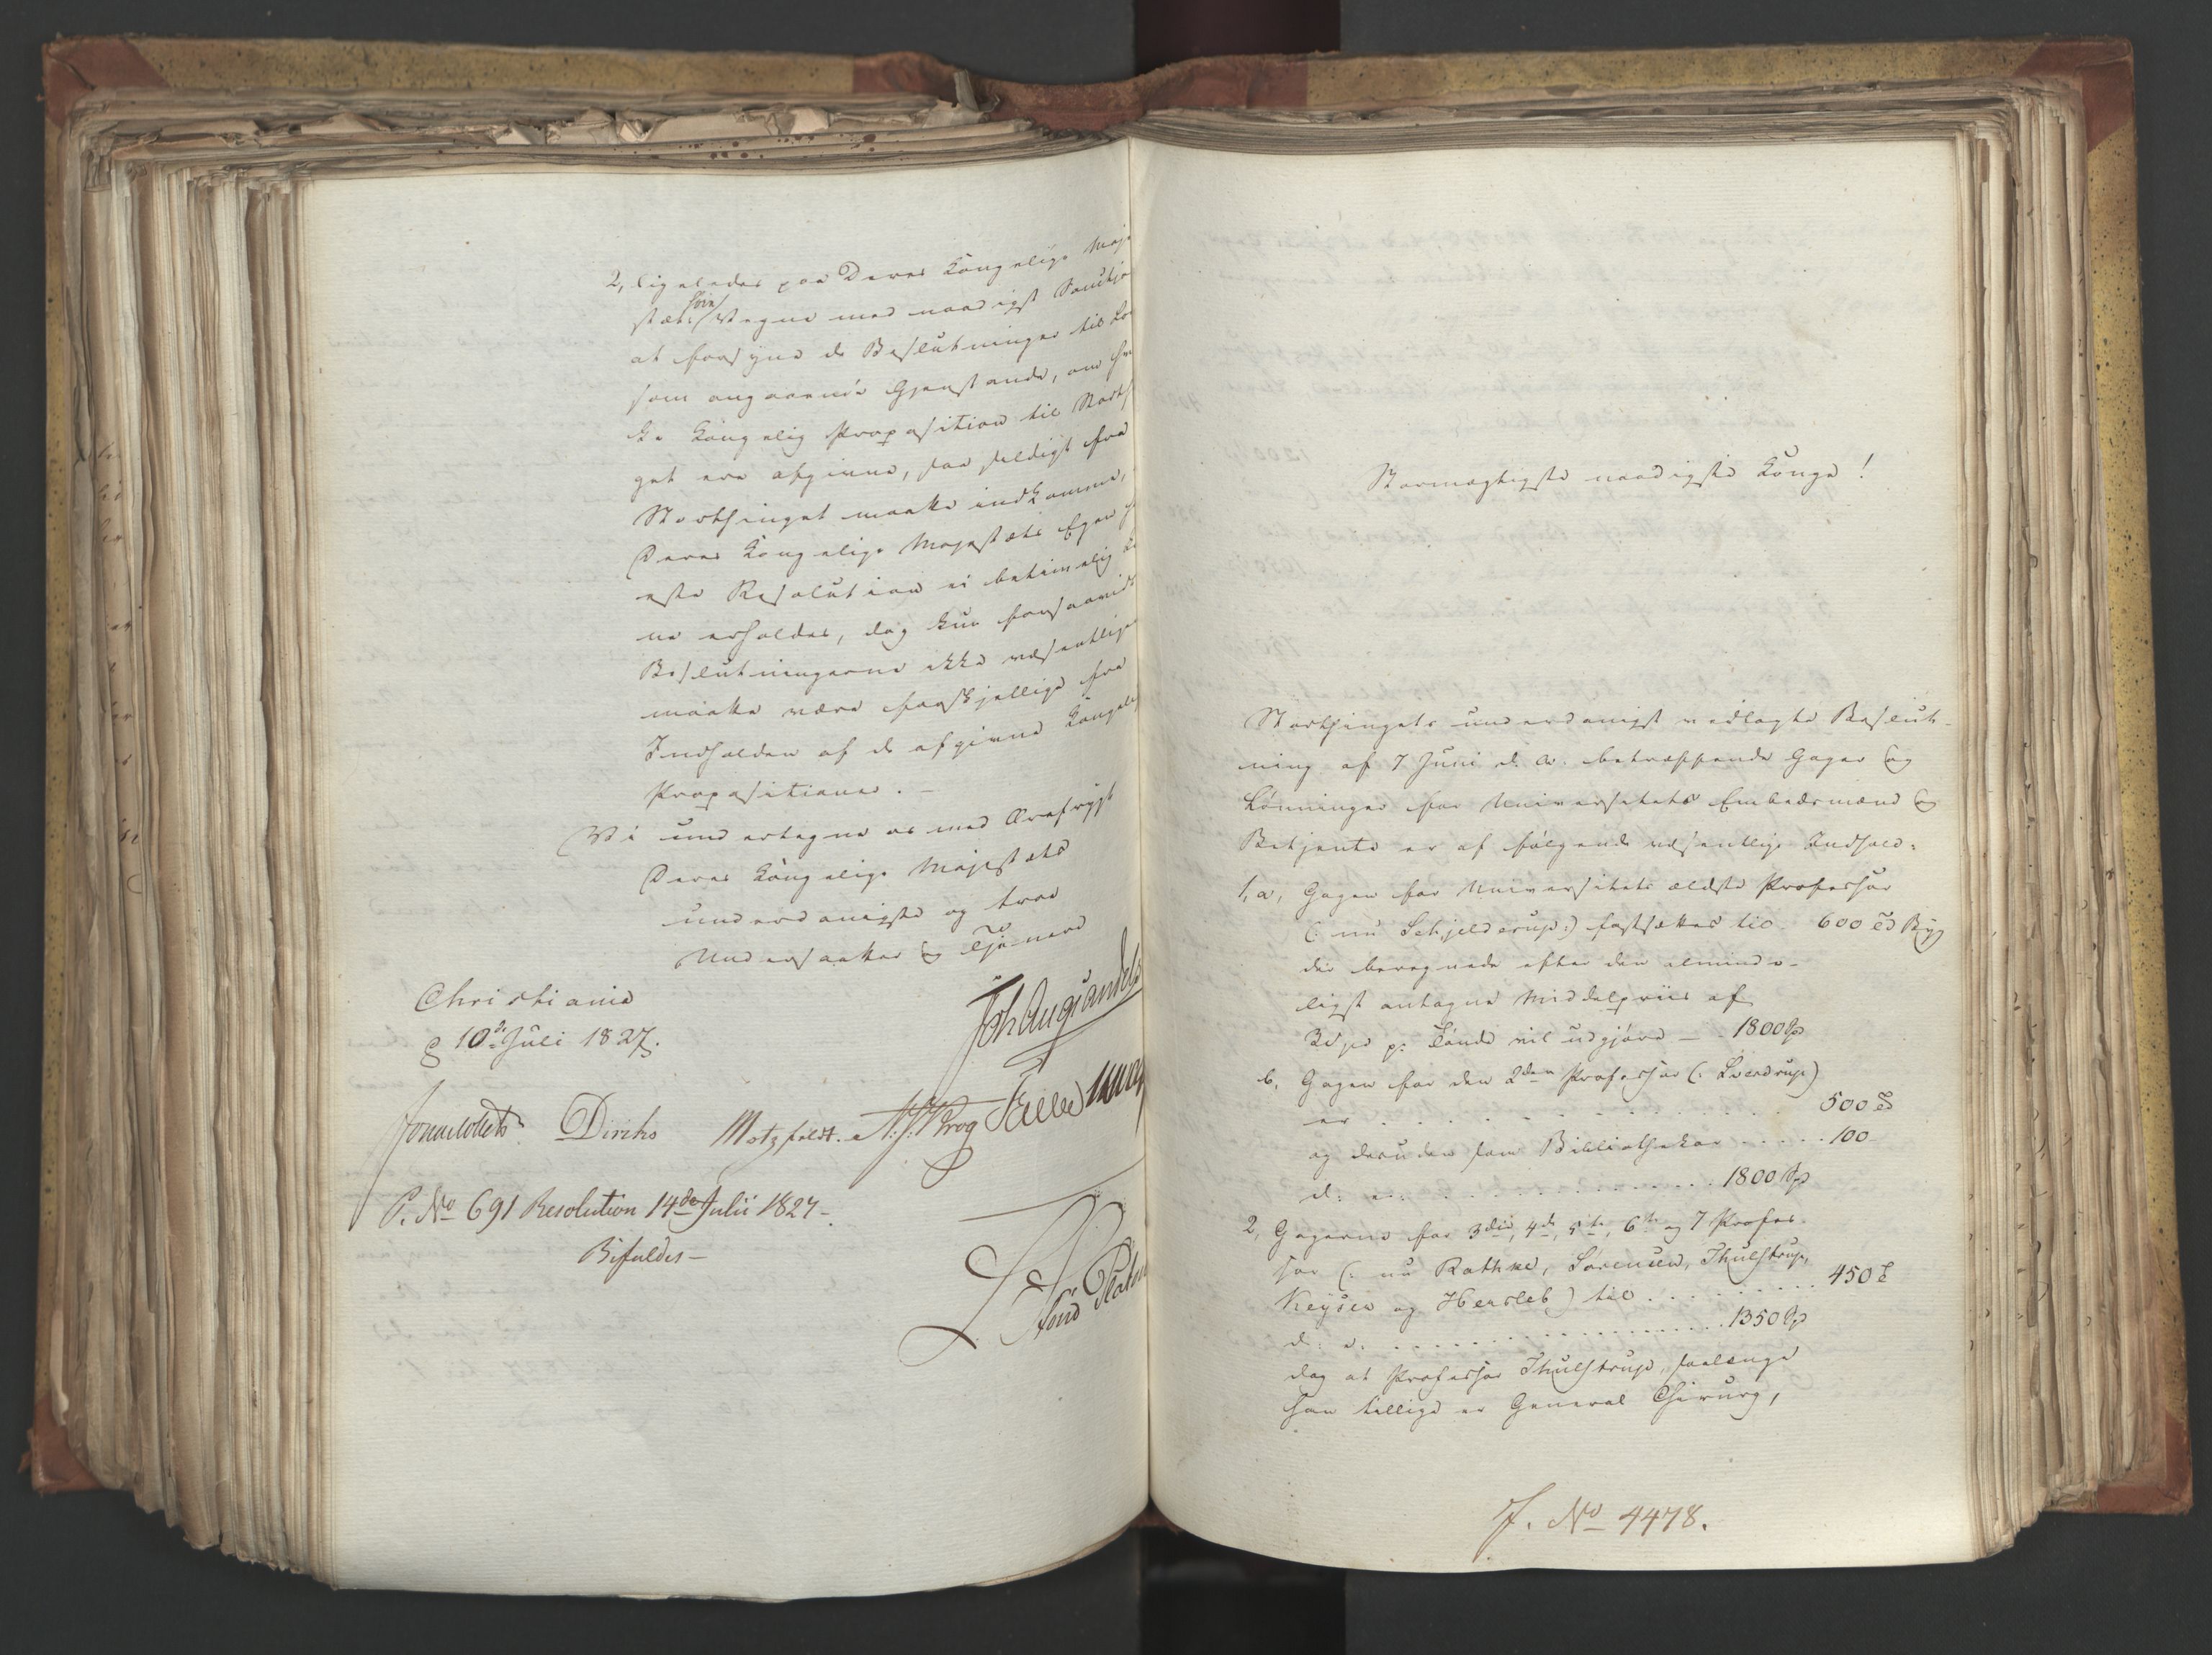 2, ligeledes paa Deres Kongelige Maje
stæts høie Vegne med naadigst Sanktion
at forsyne de Beslutninger til Lov
som angaaende Gjenstande, om hvil
ke Kongelig Proposition til Storthin
get ere afgivne, saa sildigt fra
Storthinget maatte indkomme,
Deres Kongelige Majestæts Egen
este Resolution ei betimelig
ne erholdes, dog kun forsaavidt
Beslutningerne ikke væsentligen
maatte være forskjellige fra
Indholden af de afgivne Kongelige
Propositioner. –
Vi undertegne os med Ærefrygt
Deres Kongelige Majestæts
underdanigste og troe
Undersaatter og Tjenere
Christiania
d 10de Juli 1827.
Joh Aug Sandels
Diriks Motzfeldt. Krog
P. No 691 Resolution 14de Julii 1827 –
Bifaldes –
Platen
Stormægtigste naadigste Konge!
Storthingets underdanigst vedlagte Beslut-
ning af 7 Juni d. A. betræffende Gager og
Lønninger for Universitetets Embedsmænd og
Betjente er af følgende væsentlige Indhold:
1, a, Gagen for Universitetets ældste Professor
(: nu Schjelderup:) fastsættes til 600 Td Byg
der beregnede efter den alminde-
ligst antagne Middelpriis af
3 Spd pr Tønde vil udgjøre – 1800 Spd
b, Gagen for den 2den Professor (: Sverdrup)
er . . . . . . . . 500 Td
og desuden som Bibliothekar . . . . . 100
d: e: . . . . . . . . . . 1800 Spd
2, Gagerne for 3die, 4de, 5te, 6te og 7 Profes-
sor (: nu Rathke, Sørensen, Thulstrup,
Keyser og Hersleb) til . . . . . . . . 450 Td
d: e: . . . . . . . . . . 1350 Spd
dog at Professor Thulstrup, saalænge
han tillige er General Chirurg,
J. No 4478.